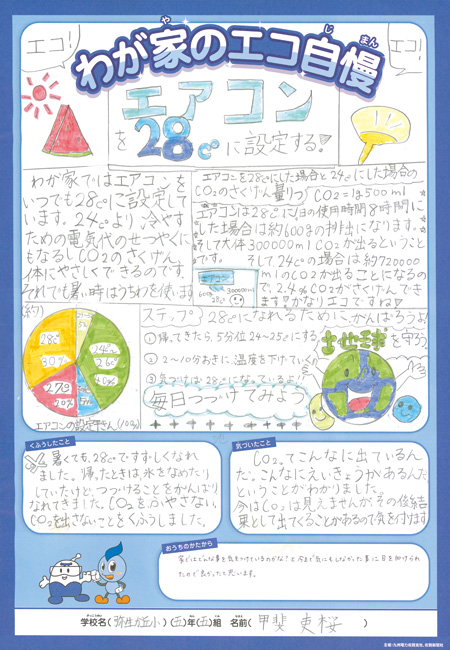 エコ!
エコ!
わが家のエコ自慢
エアコン
を28℃に設定する!
わが家ではエアコンを
いつでも28℃に設定して
います。24℃より、冷やす
ための電気代のせつやくに
もなるしCO2のさくげん、
体にやさしくできるのです。
それでも暑い時はうちわを使います
エアコンを28℃にした場合と24℃にした場合の
CO2のさくげん量
CO2=1g500ml
エアコンは28℃に1日の使用時間8時間に
した場合は約600gの排出になります。
そして大体300000mlCO2が出るということ
です。そして、24℃の場合は約720000
mlのCO2が出ることになるの
で、2.4%CO2がさくげんでき
ます。かなりエコですね
エアコン
600g
300000ml
28℃
ステップ
28℃になれるために、がんばろうよ!
①帰ってきたら、5分位24～25℃にする
②2～10分おきに、温度を下げていく
③気づけば28℃になっているよ!
毎日つづけてみよう
地球を守ろう
28℃
30%
24℃
26℃
40%
27℃
20%
エアコンの設定
くふうしたこと
暑くても、28℃ですずしくなれ
ました。帰ったときは、氷をなめたり
していたけど、つづけることをがんばり
なれてきました。CO2をふやさない、
CO2を出さないことをくふうしました。
気づいたこと
CO2ってこんなに出ているん
だ。こんなにえいきょうがあるんだ
ということがわかりました。
今はCO2は見えませんが、その後結
果として出てくることがあるので気を付けます
おうちのかたから
家にはどんな事を気をつけているのかな?と今まで気にもしなかった事に目を向けられ
たので良かったと思います。
学校名(弥生が丘小)(五)年(五)組 名前(甲斐 吏桜)
主催:九州電力佐賀支社、佐賀新聞社